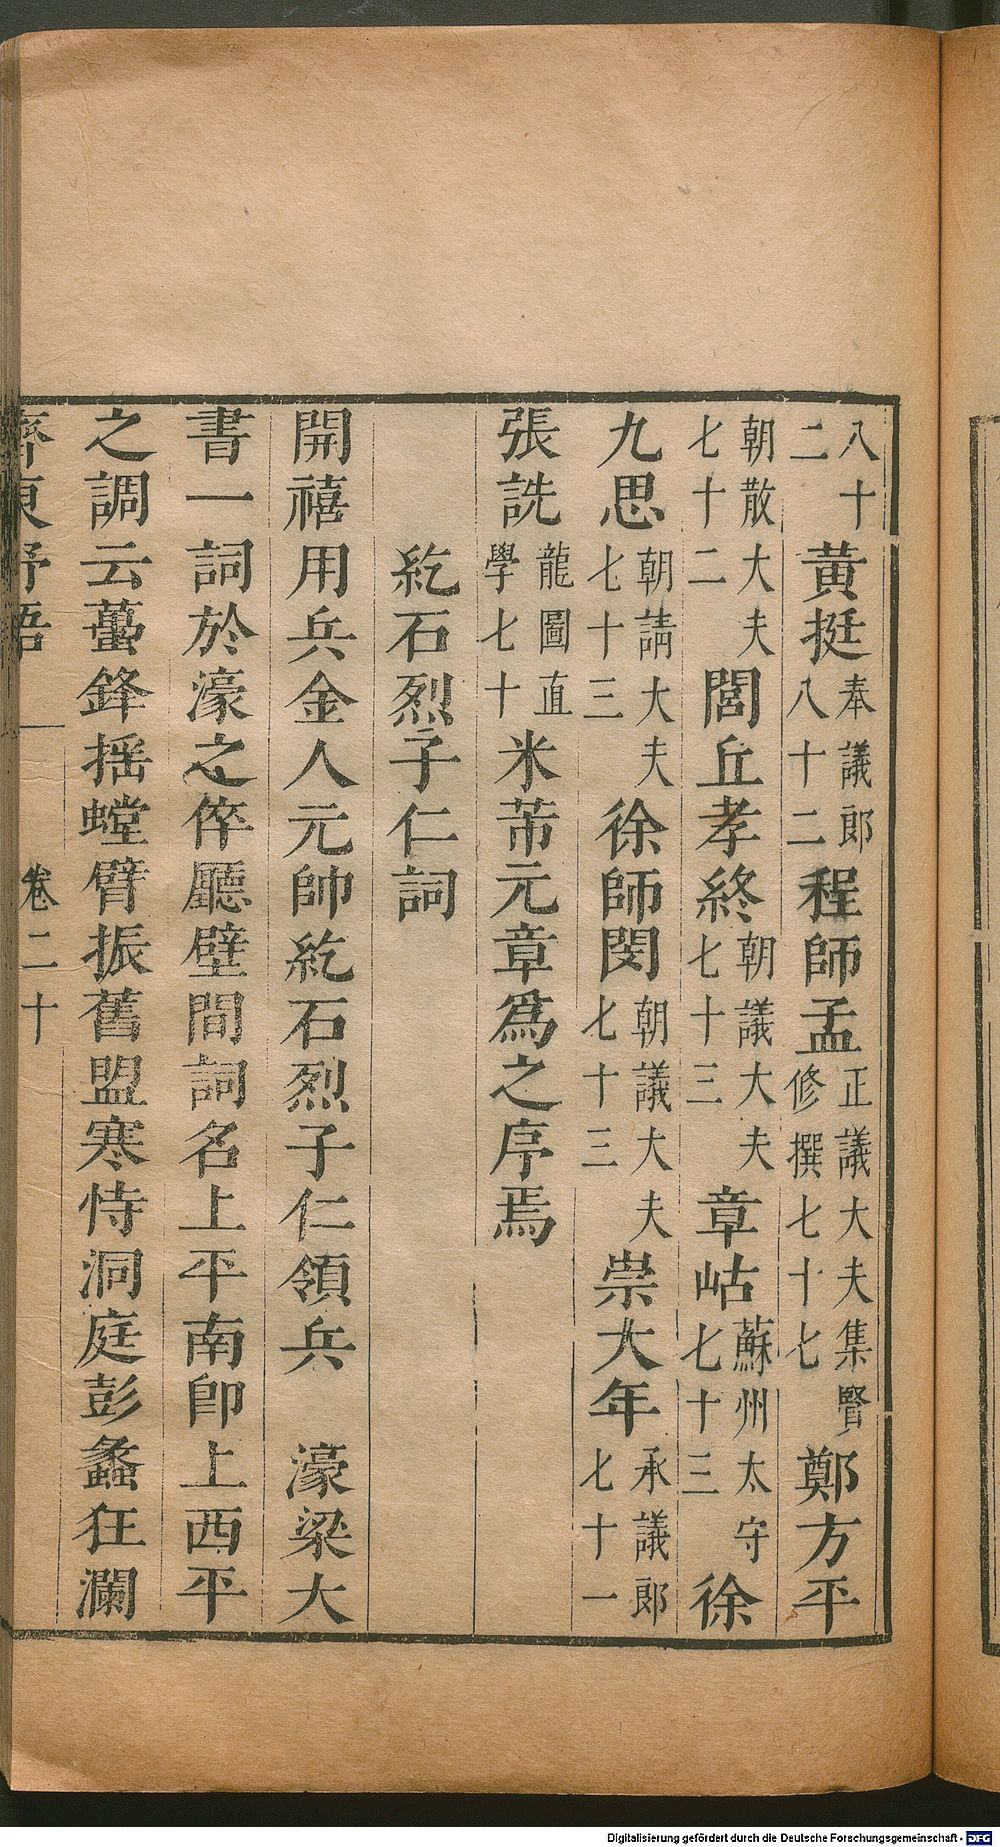 八十二黃挺奉議郎八十二程師孟正議大夫集賢修撰七十七鄭方平
朝散大夫七十二閭丘孝終朝議大夫七十三章岵蘇州太守七十三徐
九思朝請大夫七十三徐師閔朝議大夫七十三崇大年承議郎七十一
張詵龍圖直學七十米芾元章爲之序焉
紇石烈子仁詞
開禧用兵金人元帥紇石烈子仁領兵 濠梁大
書一詞於濠之倅廳壁間詞名上平南卽上西平
之調云蠆鋒摇螳臂振舊盟寒恃洞庭彭蠡狂瀾
齊東野語 卷二十
Digitalisierung gefördert durch die Deutsche Forschungsgemeinschaft - DFG